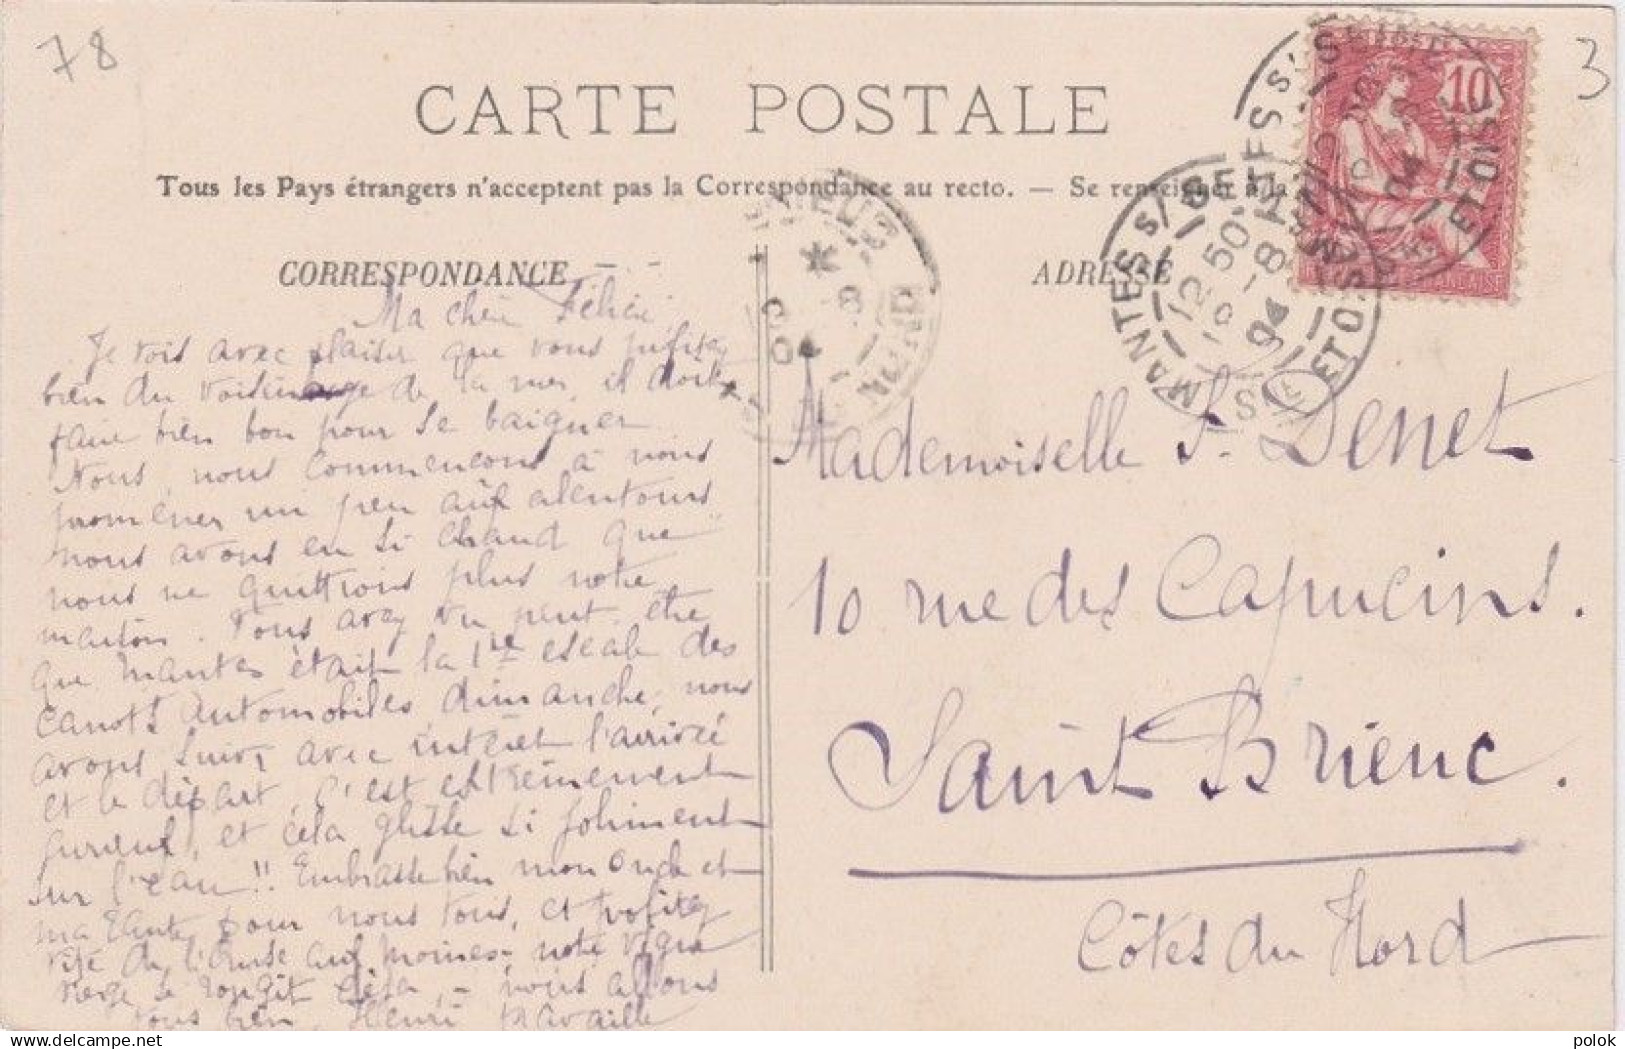 78
3
CARTE POSTALE
Tous les Pays étrangers n'acceptent pas la Correspondance au recto. — Se renseigner à la
CORRESPONDANCE
ADRESSE
10
MANTES S/ SEINE
SEINE ET OISE
12 50
8
04
Ma chère Félicie
Je vois avec plaisir que vous profitez
bien du voisinage de la mer, il doit
faire bien bon pour se baigner
Nous, nous commençons à nous
promener un peu aux alentours
nous avons eu si chaud que
nous ne quittions plus notre
maison. Vous avez vu peut-être
que Mantes était la 1re escale des
canots automobiles dimanche, nous
avons suivi avec intérêt l'arrivée
et le départ, c'est extrêmement
curieux, et cela glisse si joliment
sur l'eau !! Embrasse bien mon oncle et
ma tante pour nous tous, et profitez
de notre vigne
vierge se rougit déjà, - nous allons
tous bien, Henri travaille
Mademoiselle F. Denet
10 rue des Capucins.
Saint Brieuc.
Côtes du Nord
delcampe.net
polok